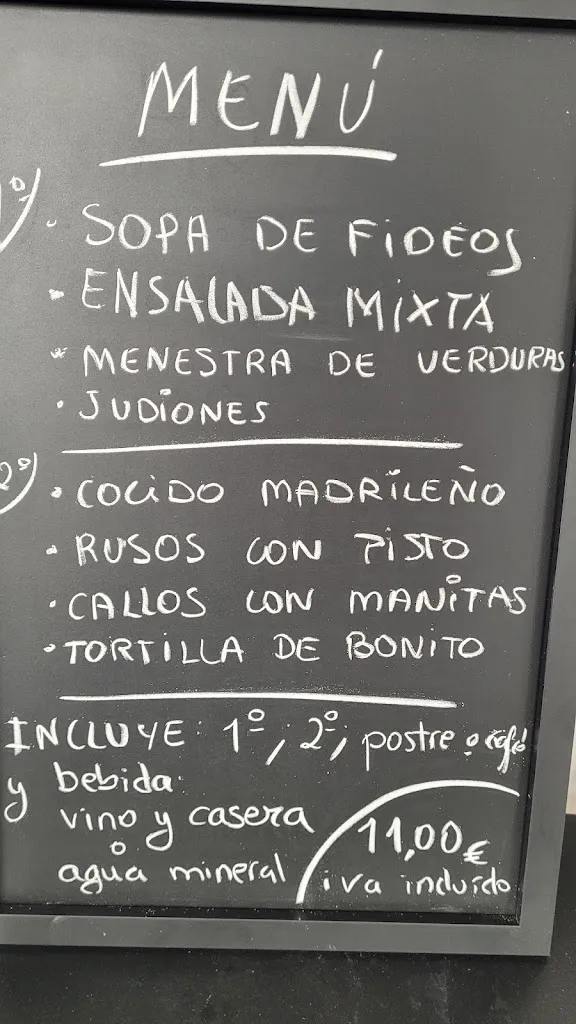 MENÚ
1º
· SOPA DE FIDEOS
· ENSALADA MIXTA
* MENESTRA DE VERDURAS
· JUDIONES
2º
· COCIDO MADRILEÑO
· RUSOS CON PISTO
· CALLOS CON MANITAS
· TORTILLA DE BONITO
INCLUYE: 1º, 2º, postre o café
y bebida:
vino y casera
o
agua mineral
11,00€
iva incluido